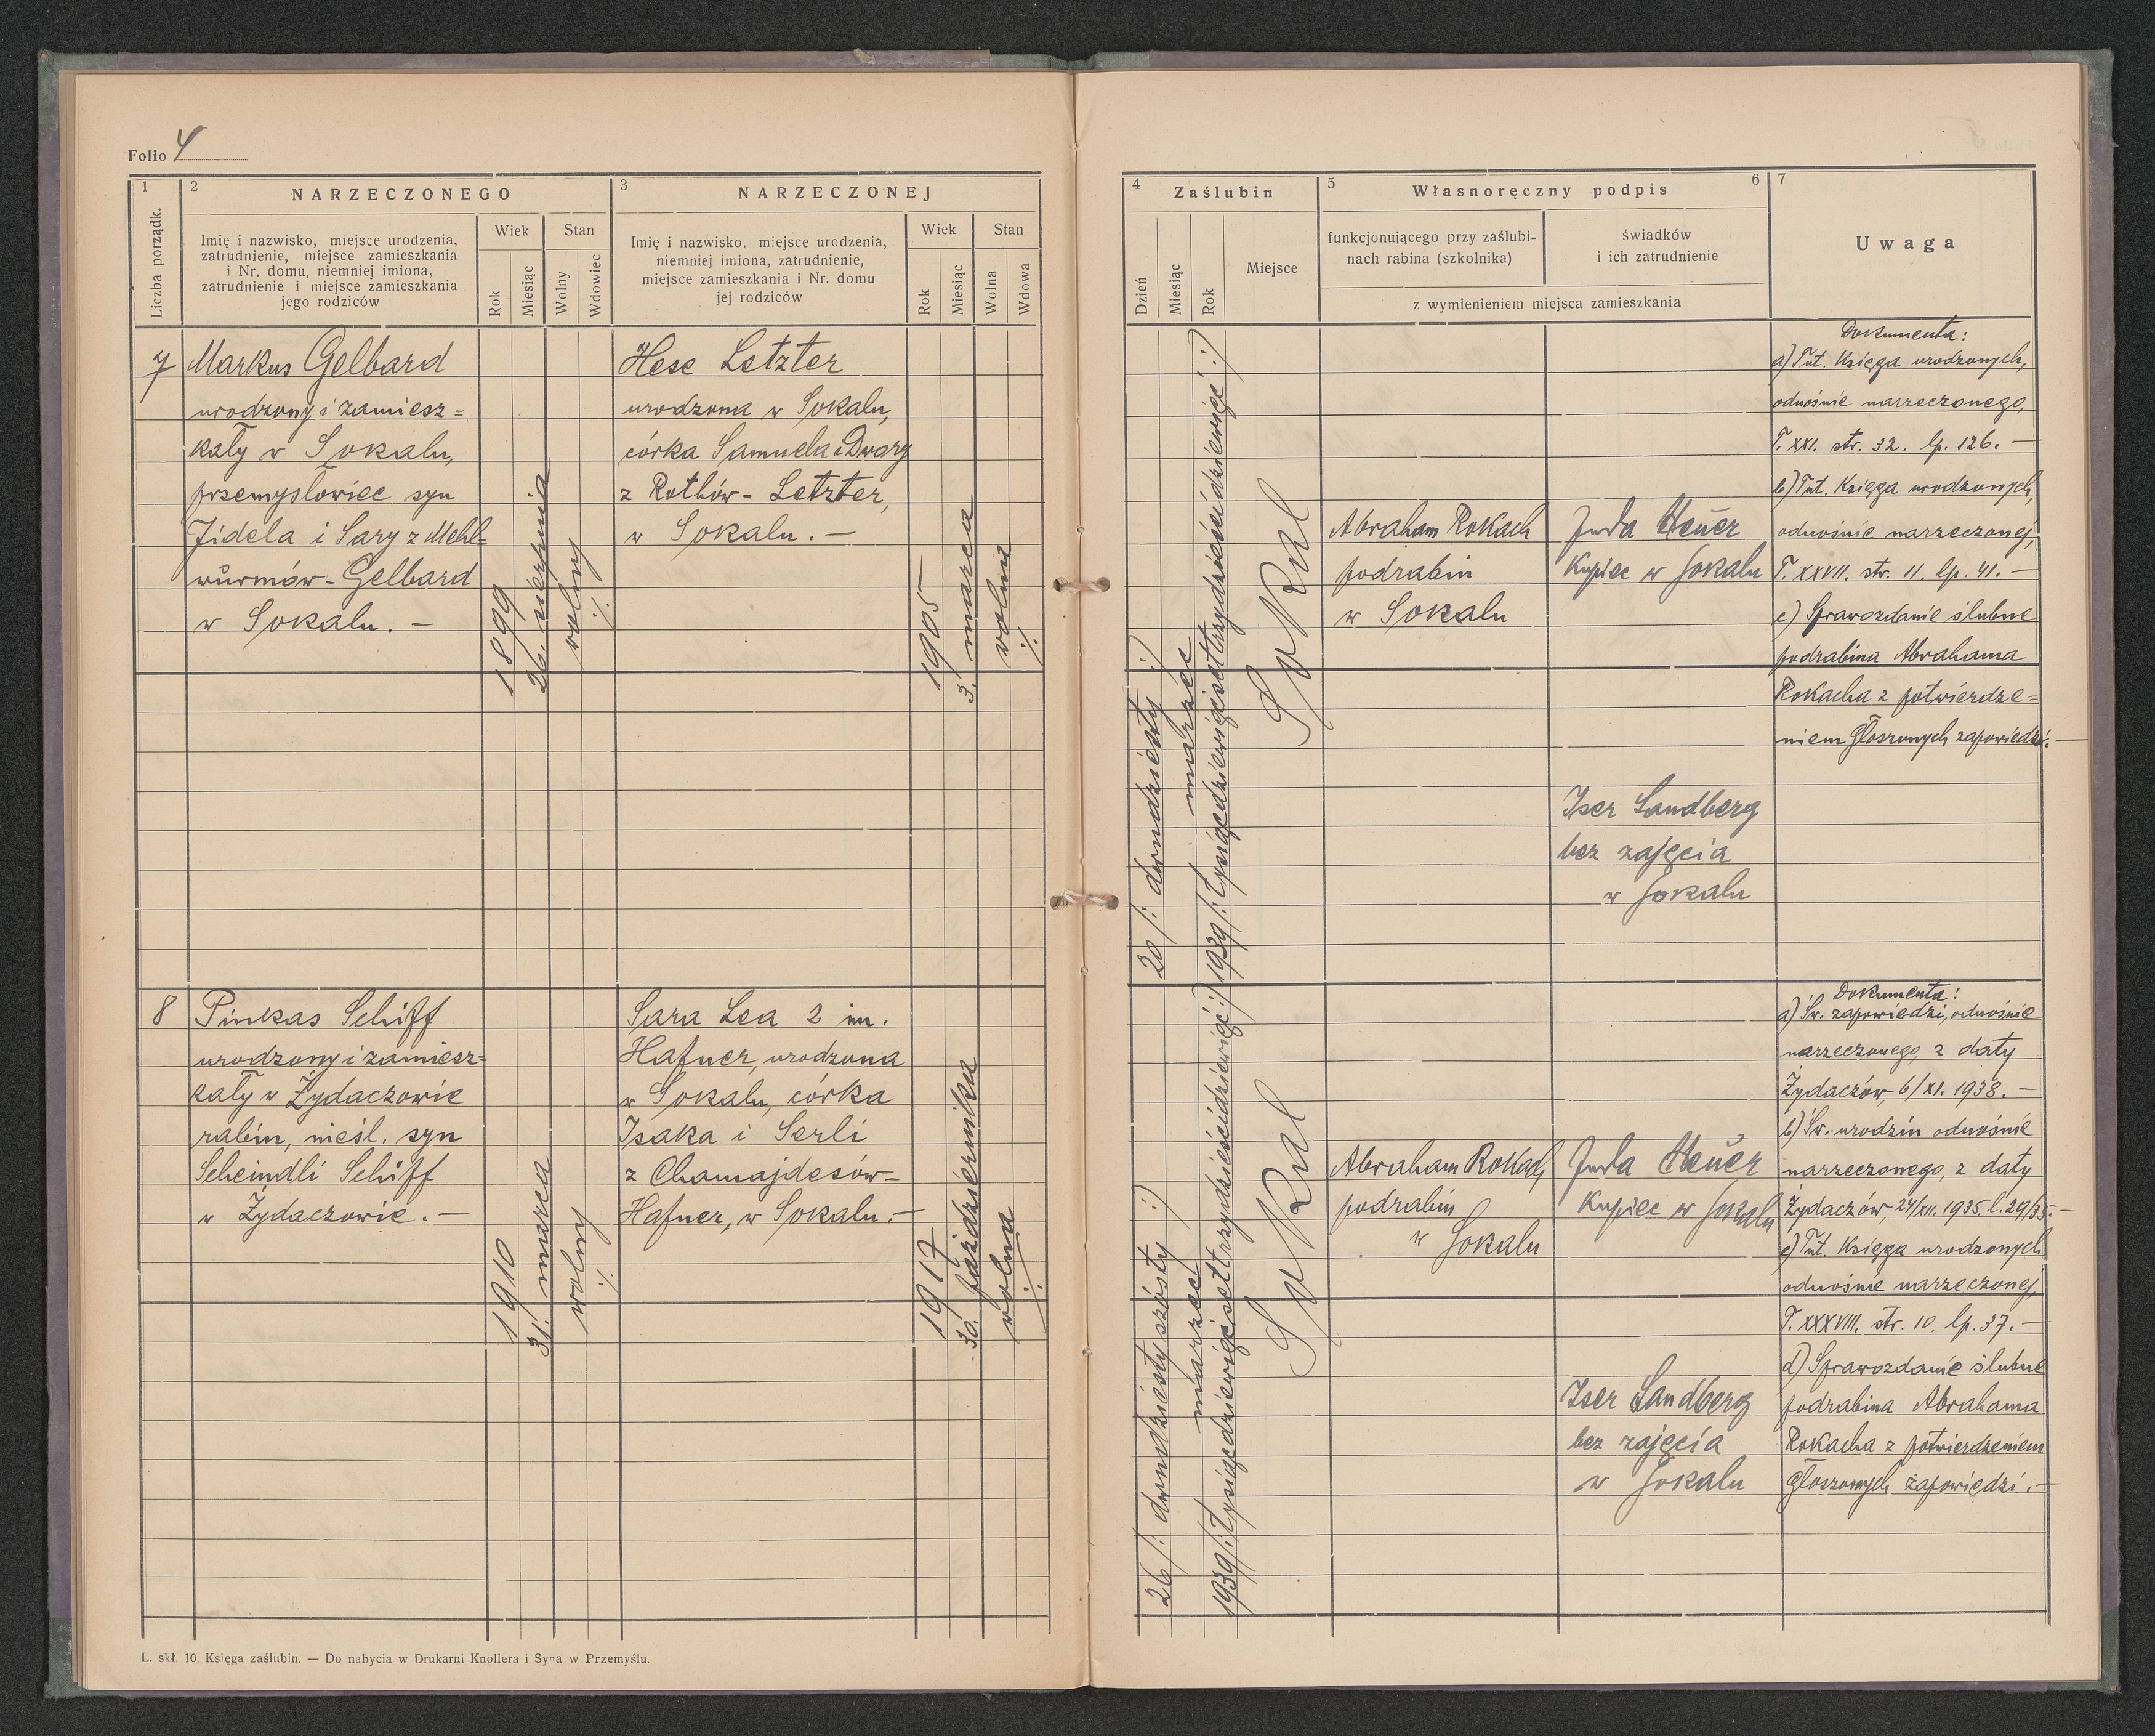 Folio 4
1
2
NARZECZONEGO
3
NARZECZONEJ
Liczba porządk.
Imię i nazwisko, miejsce urodzenia,
zatrudnienie, miejsce zamieszkania
i Nr. domu, niemniej imiona,
zatrudnienie i miejsce zamieszkania
jego rodziców
Wiek
Stan
Rok
Miesiąc
Wolny
Wdowiec
Imię i nazwisko, miejsce urodzenia,
niemniej imiona, zatrudnienie,
miejsce zamieszkania i Nr. domu
jej rodziców
Wiek
Stan
Rok
Miesiąc
Wolna
Wdowa
7
Markus Gelbard
urodzony i zamiesz=
kały w Sokalu,
przemysłowiec syn
Jidela i Sary z Mehl-
würmów-Gelbard
w Sokalu. —
1899
26. sierpnia
wolny
·/.
Hese Letzter
urodzona w Sokalu,
córka Samuela i Dwory
z Rothów- Letzter,
w Sokalu. —
1905
3. marca
wolna
·/.
8
Pinkas Schiff
urodzony i zamiesz=
kały w Żydaczowie
rabin, nieśl. syn
Scheindli Schiff
w Żydaczowie. —
1910
31. marca
wolny
·/.
Sara Lea 2 im.
Hafner, urodzona
w Sokalu, córka
Isaka i Serli
z Chamajdesów—
Hafner, w Sokalu. —
1917
30. października
wolna
·/.
L. skł. 10. Księga zaślubin. — Do nabycia w Drukarni Knollera i Syna w Przemyślu.
4
Zaślubin
5
Własnoręczny podpis
6
7
Dzień
Miesiąc
Rok
Miejsce
funkcjonującego przy zaślubi-
nach rabina (szkolnika)
świadków
i ich zatrudnienie
z wymienieniem miejsca zamieszkania
Uwaga
20 /: dwudziesty :/
marzec
1939 /: tysiącdziewięćsettrzydzieścidziewięć :/
Sokal
Abraham Rokach
podrabin
w Sokalu
Juda Heuer
Kupiec w Sokalu
Iser Sandberg
bez zajęcia
w Sokalu
Dokumenta:
a) Tut. Księga urodzonych,
odnośnie narzeczonego,
T. XXI. str. 32. lp. 126. —
b) Tut. Księga urodzonych,
odnośnie narzeczonej,
T. XXVII. str. 11. lp. 41. —
c) Sprawozdanie ślubne
podrabina Abrahama
Rokacha z potwierdze=
niem głoszonych zapowiedzi. —
26 /: dwudziesty szósty :/
marzec
1939 /: tysiącdziewięćsettrzydzieścidziewięć :/
Sokal
Abraham Rokach
podrabin
w Sokalu
Juda Heuer
Kupiec w Sokalu
Iser Sandberg
bez zajęcia
w Sokalu
Dokumenta:
a) Św. zapowiedzi, odnośnie
narzeczonego, z daty
Żydaczów, 6/XI. 1938. —
b) Św. urodzin odnośnie
narzeczonego, z daty
Żydaczów, 24/XII. 1935. l. 29/35. —
c) Tut. Księga urodzonych
odnośnie narzeczonej,
T. XXXVIII. str. 10. lp. 37. —
d) Sprawozdanie ślubne
podrabina Abrahama
Rokacha z potwierdzeniem
głoszonych zapowiedzi. —